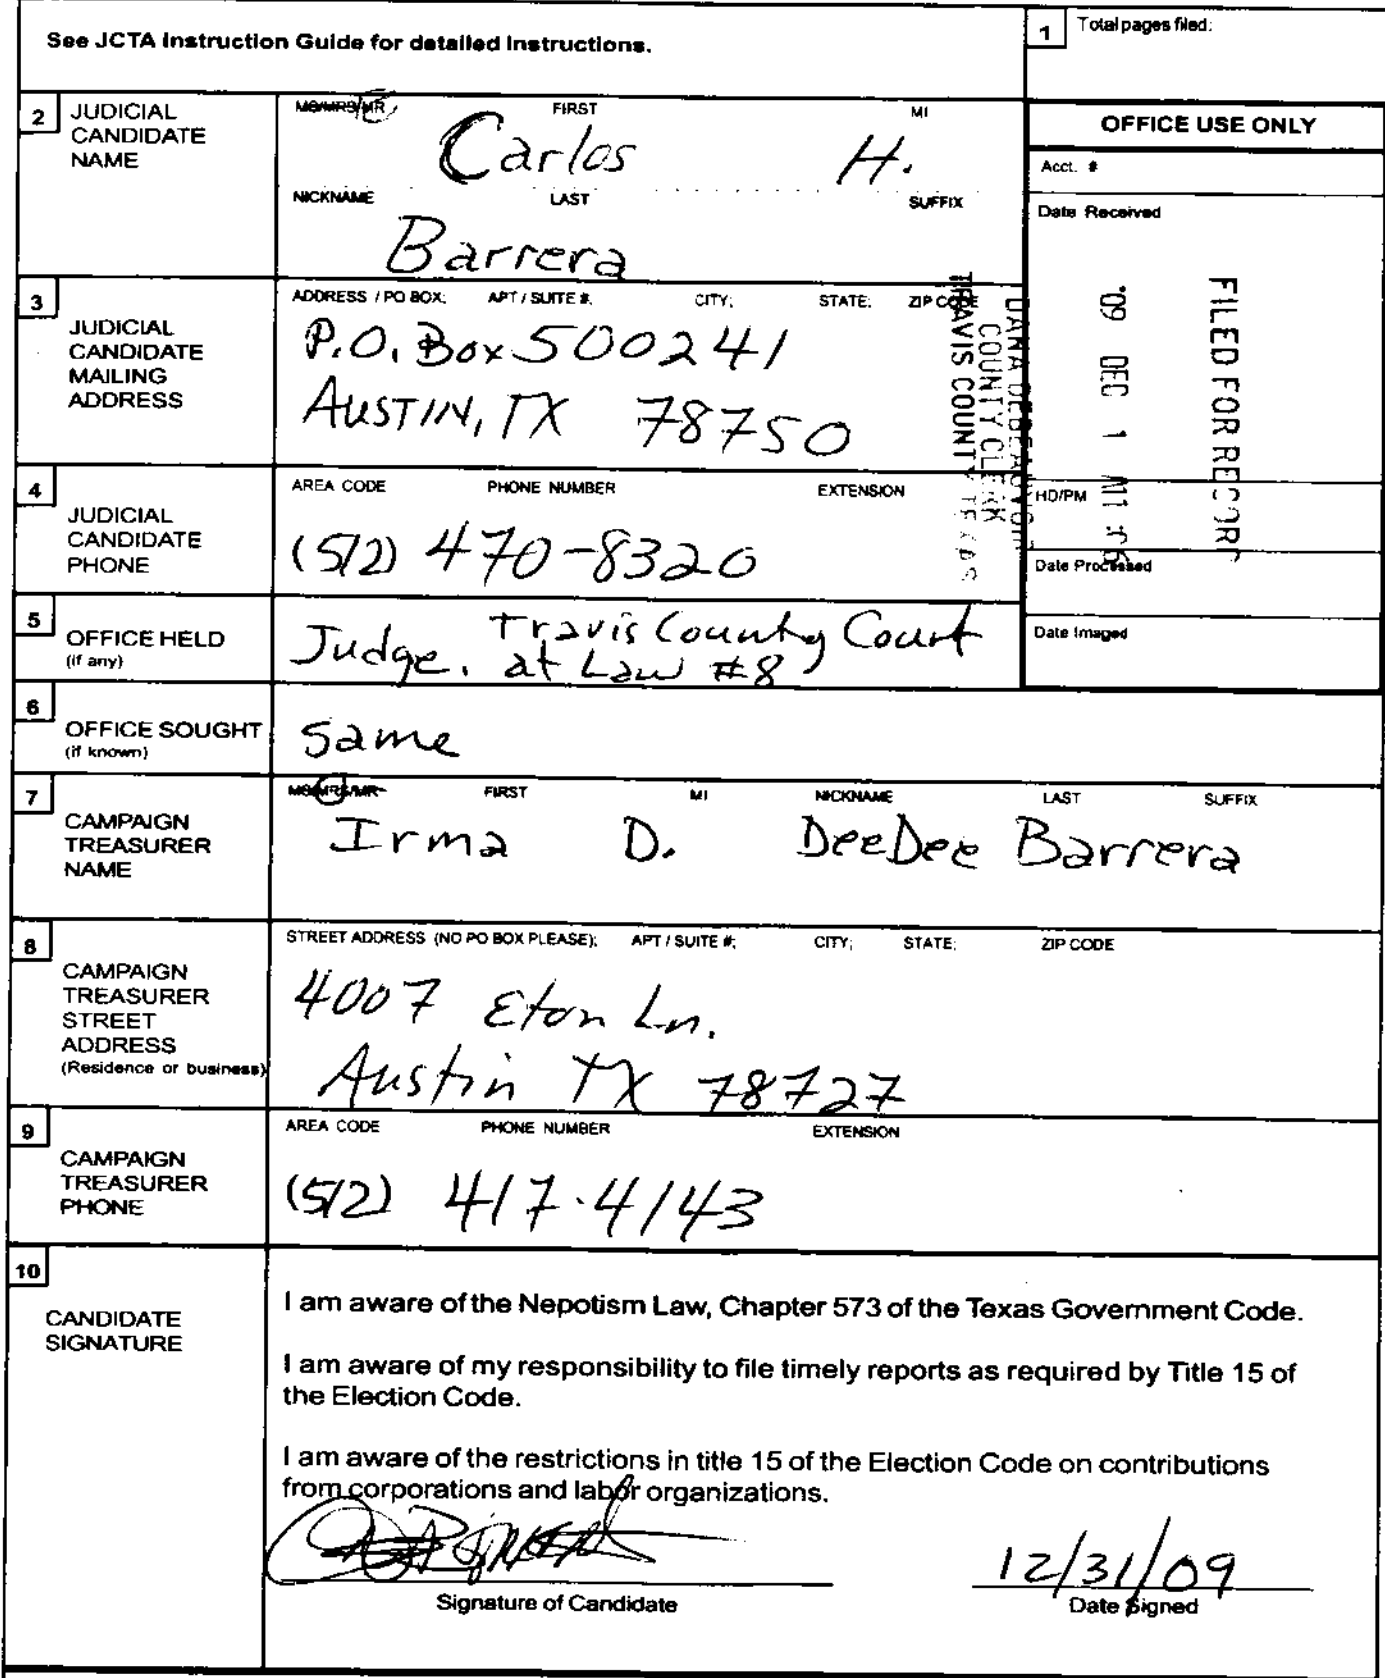 See JCTA Instruction Guide for detailed instructions.
1 Total pages filed:
2 JUDICIAL CANDIDATE NAME
MS/MRS/MR FIRST MI
Carlos H.
NICKNAME LAST SUFFIX
Barrera
OFFICE USE ONLY
Acct. #
Date Received
FILED FOR RECORD
'09 DEC 1
DANA
COUNTY CLERK
TRAVIS COUNTY TEXAS
HD/PM
Date Processed
Date Imaged
3 JUDICIAL CANDIDATE MAILING ADDRESS
ADDRESS / PO BOX; APT / SUITE #; CITY; STATE; ZIP CODE
P.O. Box 500241
AUSTIN, TX 78750
4 JUDICIAL CANDIDATE PHONE
AREA CODE PHONE NUMBER EXTENSION
(512) 470-8320
5 OFFICE HELD (if any)
Judge, Travis County Court
at Law #8
6 OFFICE SOUGHT (if known)
same
7 CAMPAIGN TREASURER NAME
MS/MRS/MR FIRST MI NICKNAME LAST SUFFIX
Irma D. DeeDee Barrera
8 CAMPAIGN TREASURER STREET ADDRESS (Residence or business)
STREET ADDRESS (NO PO BOX PLEASE); APT / SUITE #; CITY; STATE; ZIP CODE
4007 Eton Ln.
Austin TX 78727
9 CAMPAIGN TREASURER PHONE
AREA CODE PHONE NUMBER EXTENSION
(512) 417-4143
10 CANDIDATE SIGNATURE
I am aware of the Nepotism Law, Chapter 573 of the Texas Government Code.
I am aware of my responsibility to file timely reports as required by Title 15 of
the Election Code.
I am aware of the restrictions in title 15 of the Election Code on contributions
from corporations and labor organizations.
12/31/09
Signature of Candidate Date Signed